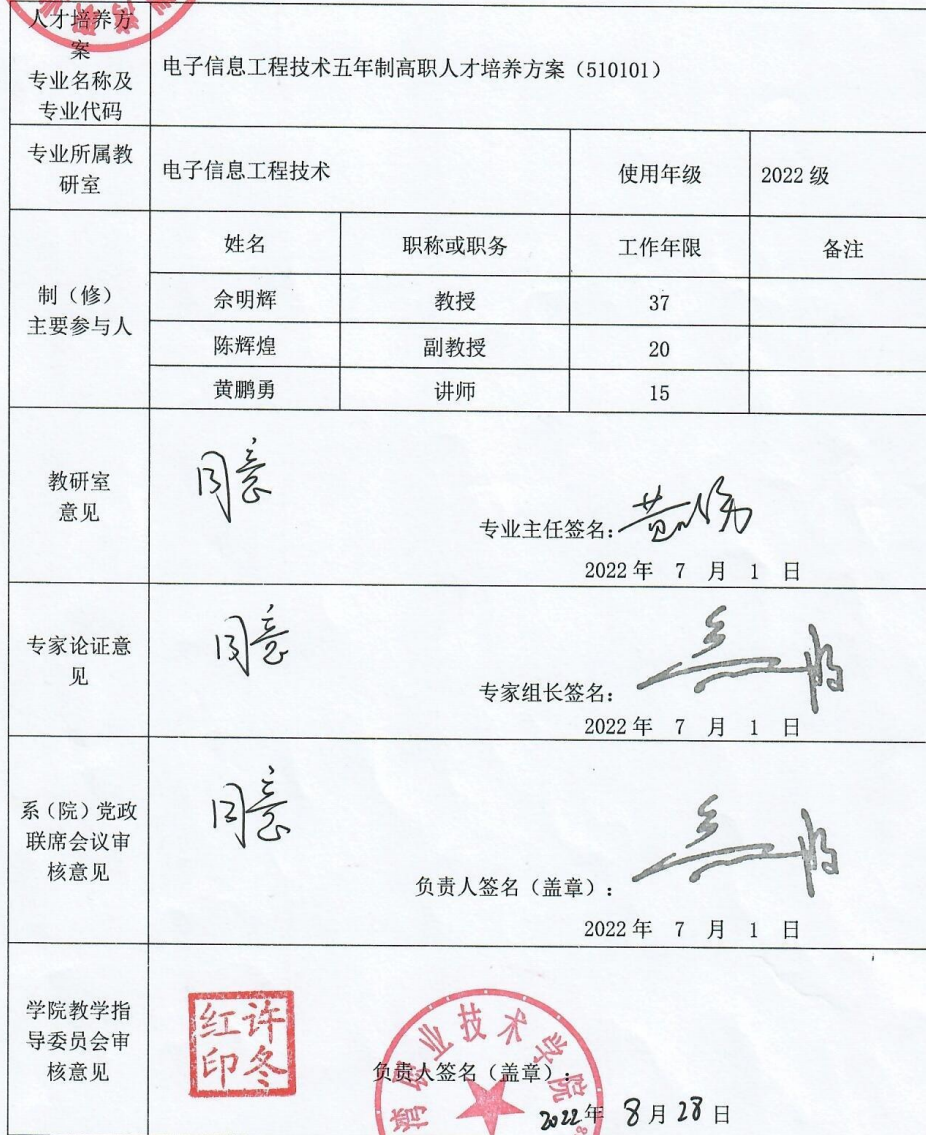 人才培养方
案
专业名称及
专业代码
电子信息工程技术五年制高职人才培养方案（510101）
专业所属教
研室
电子信息工程技术
使用年级
2022 级
制（修）
主要参与人
姓名
职称或职务
工作年限
备注
佘明辉
教授
37
陈辉煌
副教授
20
黄鹏勇
讲师
15
教研室
意见
同意
专业主任签名：
2022 年 7 月 1 日
专家论证意
见
同意
专家组长签名：
2022 年 7 月 1 日
系（院）党政
联席会议审
核意见
同意
负责人签名（盖章）：
2022 年 7 月 1 日
学院教学指
导委员会审
核意见
许冬
红印
职业技术学院
负责人签名（盖章）：
2022 年 8 月 28 日